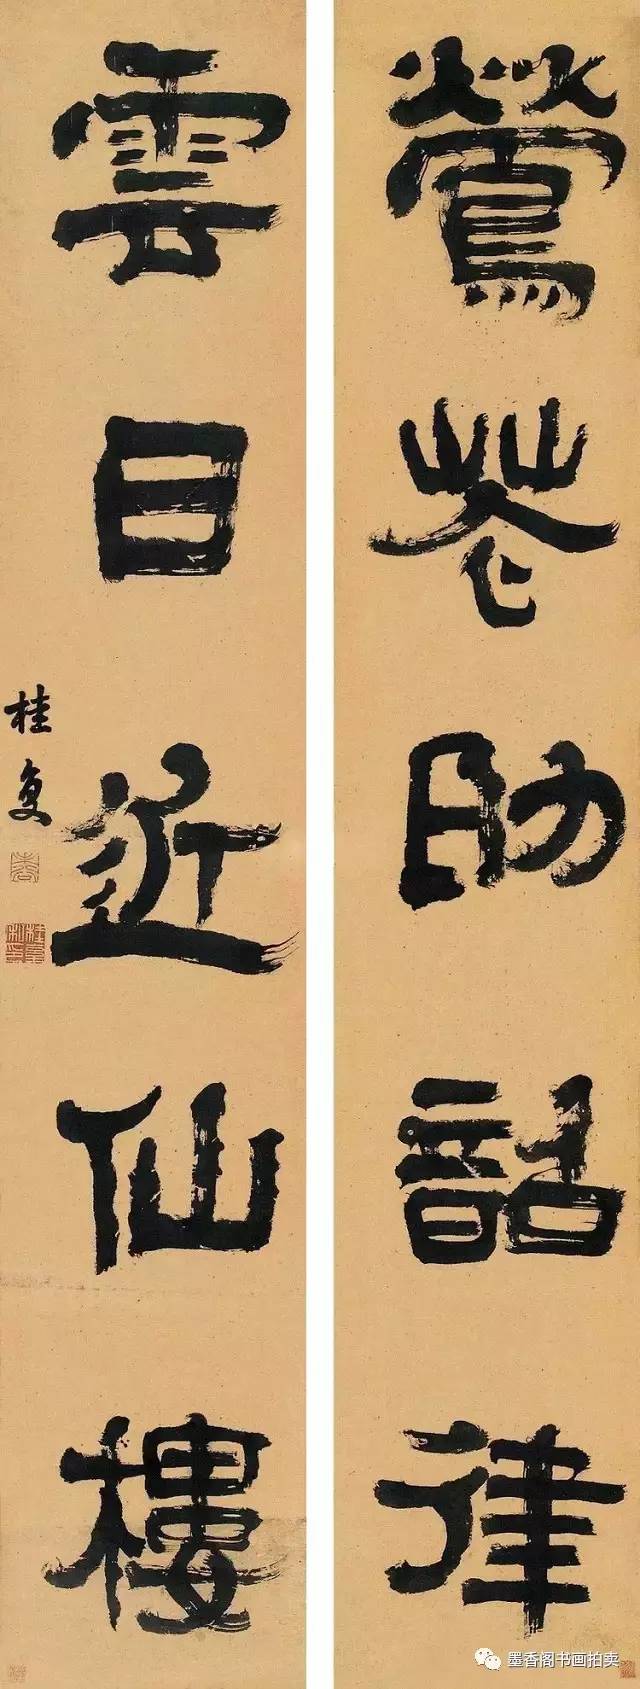 鶯花助韶律
雲日近仙樓
桂复
墨香阁书画拍卖